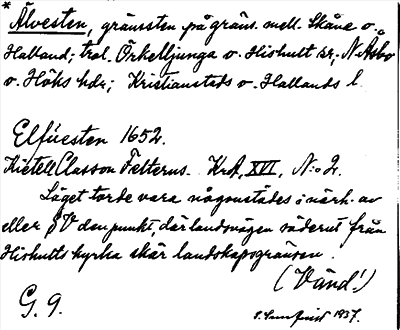 * Älvesten, gränssten på gräns. mell. Skåne o.
Halland; trol. Örkelljunga o. Hishult sr, N. Åsbo
o. Höks hdr; Kristianstads o. Hallands l.
Elfüesten 1652.
Kietell Classon Felterus. KrA, XVI, N:o 2.
Läget torde vara någonstädes i närh. av
eller SV den punkt, där landsvägen söderut från
Hishults kyrka skär landskapsgränsen.
(Vänd!)
G. 9.
1937.